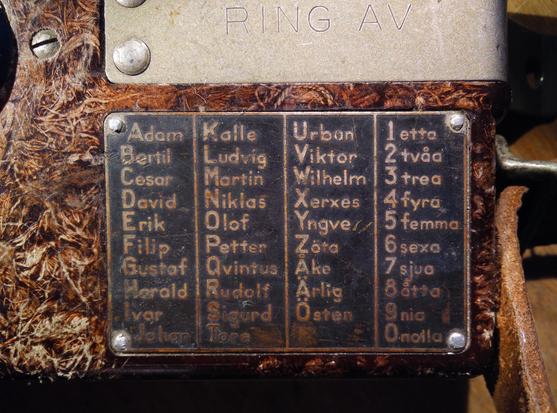 RING AV
Adam Kalle Urban 1 etta
Bertil Ludvig Viktor 2 tvåa
Cesar Martin Wilhelm 3 trea
David Niklas Xerxes 4 fyra
Erik Olof Yngve 5 femma
Filip Petter Zäta 6 sexa
Gustaf Qvintus Åke 7 sjua
Harald Rudolf Ärlig 8 åtta
Ivar Sigurd Östen 9 nia
Johan Tore 0 nolla